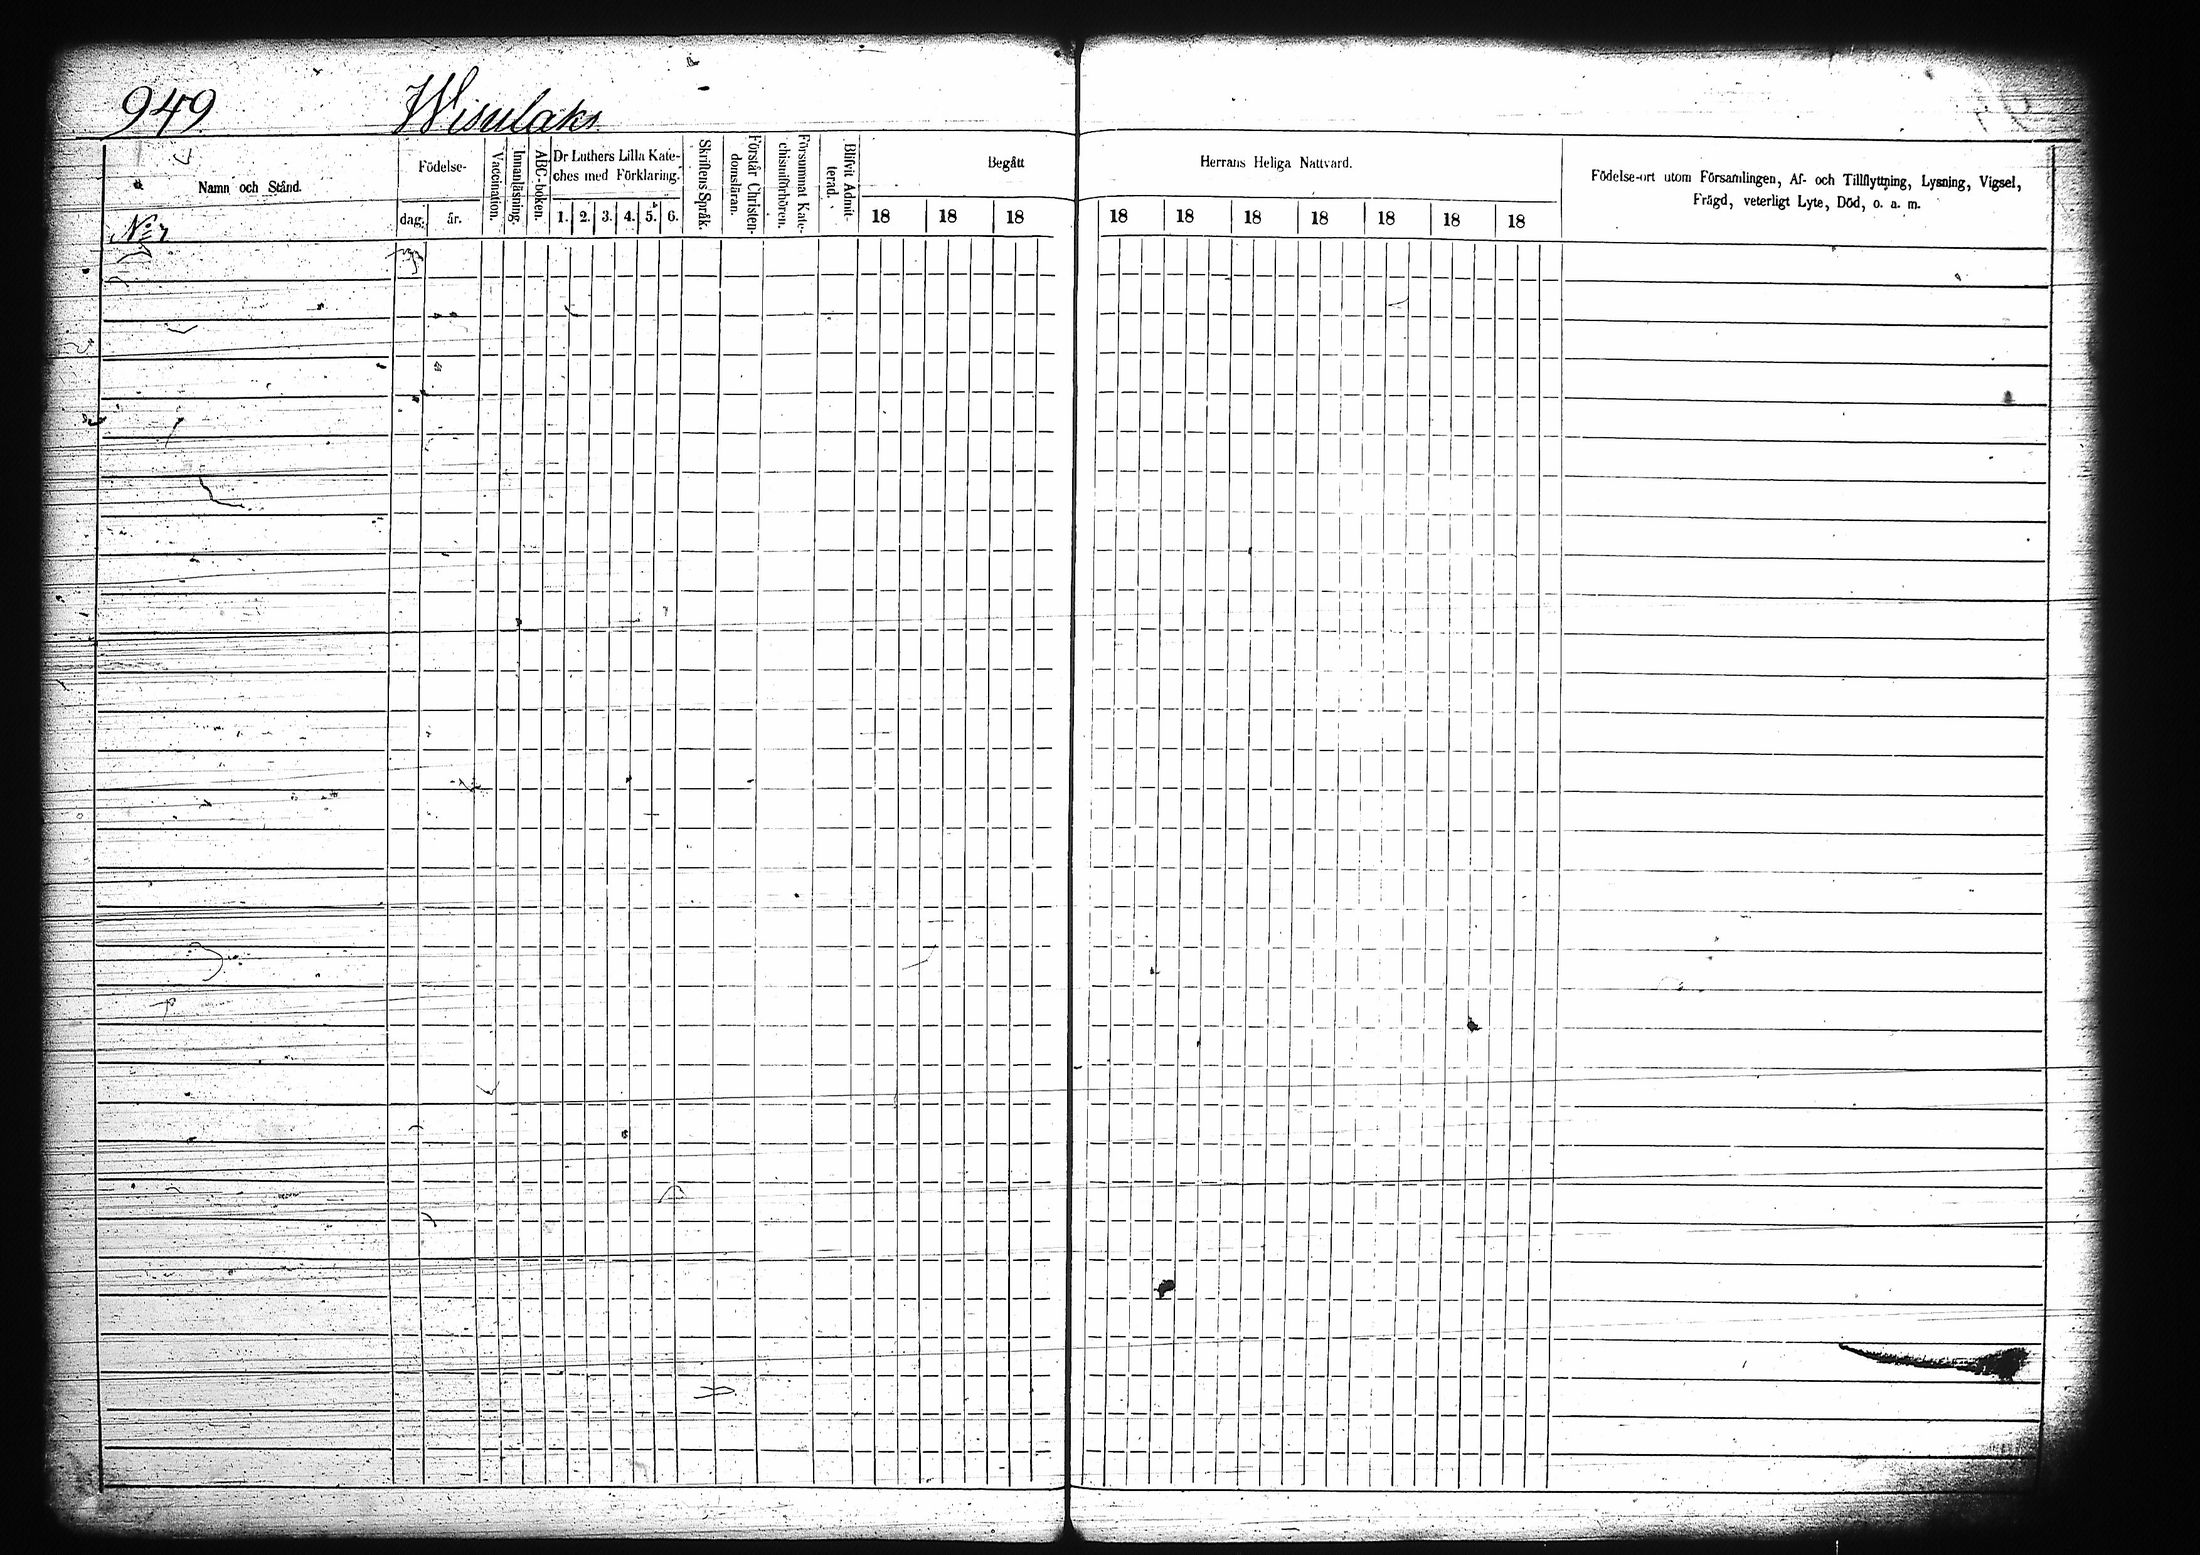 949 Wisulaks
Namn och Stånd.
No 7
Födelse-
dag. år.
Vaccination.
Innanläsning.
ABC-boken.
Dr Luthers Lilla Kate-
ches med Förklaring.
1. 2. 3. 4. 5. 6.
Skriftens Språk.
Förstår Christen-
domsläran.
Försummat Kate-
chismiförhören.
Blifvit Admit-
terad.
Begått Herrans Heliga Nattvard.
18 18 18 18 18 18 18 18 18 18
Födelse-ort utom Församlingen, Af- och Tillflyttning, Lysning, Vigsel,
Frägd, veterligt Lyte, Död, o. a. m.